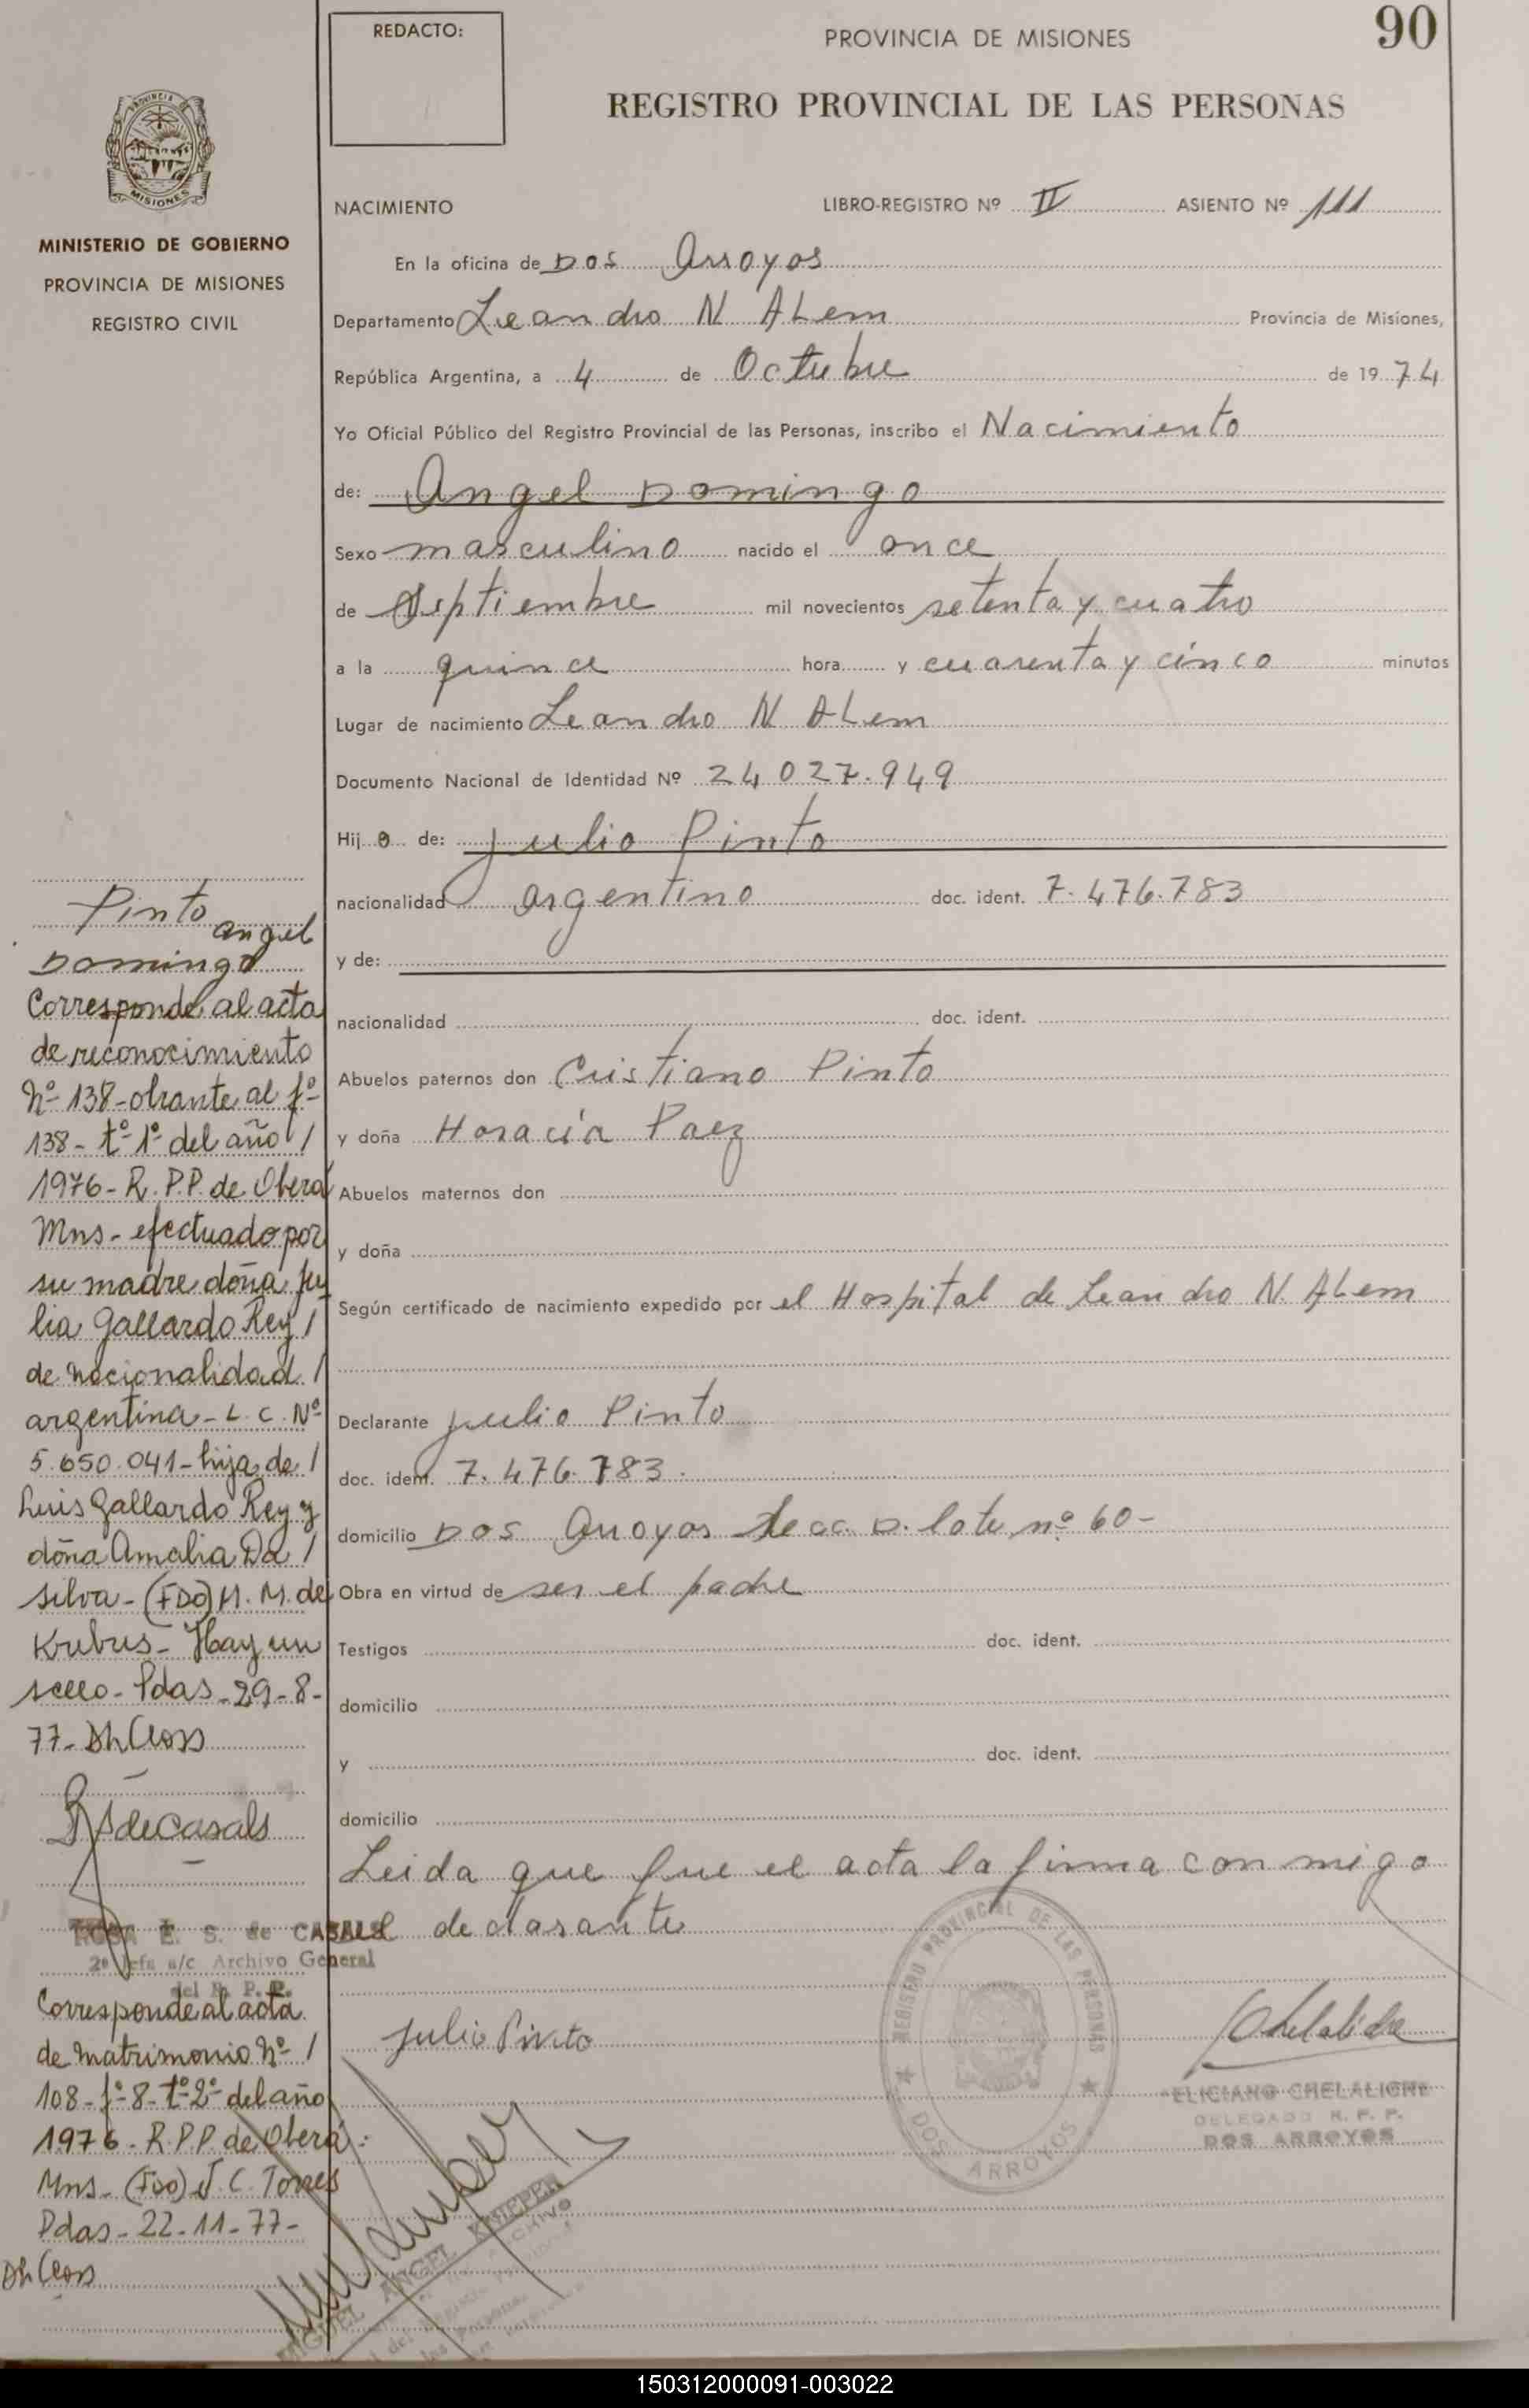 90
REDACTO:
PROVINCIA DE MISIONES
REGISTRO PROVINCIAL DE LAS PERSONAS
PROVINCIA DE
MISIONES
MINISTERIO DE GOBIERNO
PROVINCIA DE MISIONES
REGISTRO CIVIL
NACIMIENTO LIBRO-REGISTRO Nº II ASIENTO Nº 111
En la oficina de Dos Arroyos
Departamento Leandro N ALem Provincia de Misiones,
República Argentina, a 4 de Octubre de 1974
Yo Oficial Público del Registro Provincial de las Personas, inscribo el Nacimiento
de: Angel Domingo
Sexo masculino nacido el once
de Septiembre mil novecientos setenta y cuatro
a la quince hora y cuarenta y cinco minutos
Lugar de nacimiento Leandro N ALem
Documento Nacional de Identidad Nº 24 027.949
Hijo de: Julio Pinto
nacionalidad argentino doc. ident. 7.476.783
y de:
nacionalidad doc. ident.
Abuelos paternos don Cristiano Pinto
y doña Horacia Paez
Abuelos maternos don
y doña
Según certificado de nacimiento expedido por el Hospital de Leandro N. ALem
Declarante Julio Pinto
doc. ident. 7.476.783.
domicilio Dos Arroyos Secc. D. lote nº 60-
Obra en virtud de ser el padre
Testigos doc. ident.
domicilio
y doc. ident.
domicilio
Leida que fue el acta la firma con migo
el declarante
Julio Pinto
REGISTRO PROVINCIAL DE LAS PERSONAS
DOS ARROYOS
Chelaliche
FELICIANO CHELALICHE
DELEGADO R. P. P.
DOS ARROYOS
Pinto angel
Domingo
Corresponde al acta
de reconocimiento
Nº 138-obrante al fº
138- tº 1º del año /
1976- R. P.P. de Oberá
Mns- efectuado por
su madre doña Ju
lia Gallardo Rey /
de nacionalidad /
argentina- L. C. Nº
5.650.041- hija de /
Luis Gallardo Rey y
doña Amalia Da /
Silva- (FDO) H. M. de
Krubus- Hay un
sello- Pdas- 29-8-
77- Dh Closs
RSdeCasals
ROSA E. S. de CASALS
2º Jefa a/c Archivo General
del R. P. P.
Corresponde al acta
de Matrimonio Nº /
108- fº 8- tº 2º del año
1976- R.P.P. de Oberá-
Mns- (FDO) J. C. Torres
Pdas- 22-11-77-
Dh Closs
MIGUEL ANGEL KNIEPER
150312000091-003022